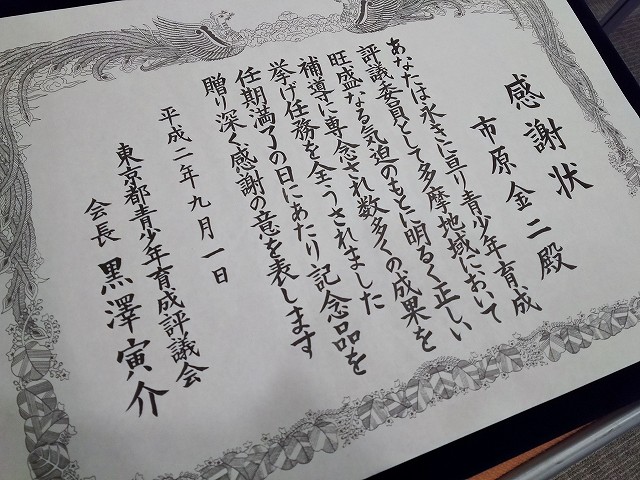 感謝状
市原金二殿
あなたは永きに亘り青少年育成
評議委員として多摩地域において
旺盛なる気迫のもとに明るく正しい
補導に専念され数多くの成果を
挙げ任務を全うされました
任期満了の日にあたり記念品を
贈り深く感謝の意を表します
平成二年九月一日
東京都青少年育成評議会
会長 黒澤寅介